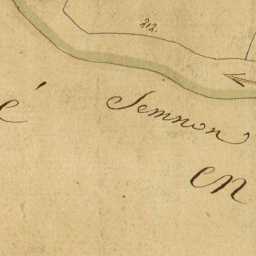 212.
é
Semnon
en